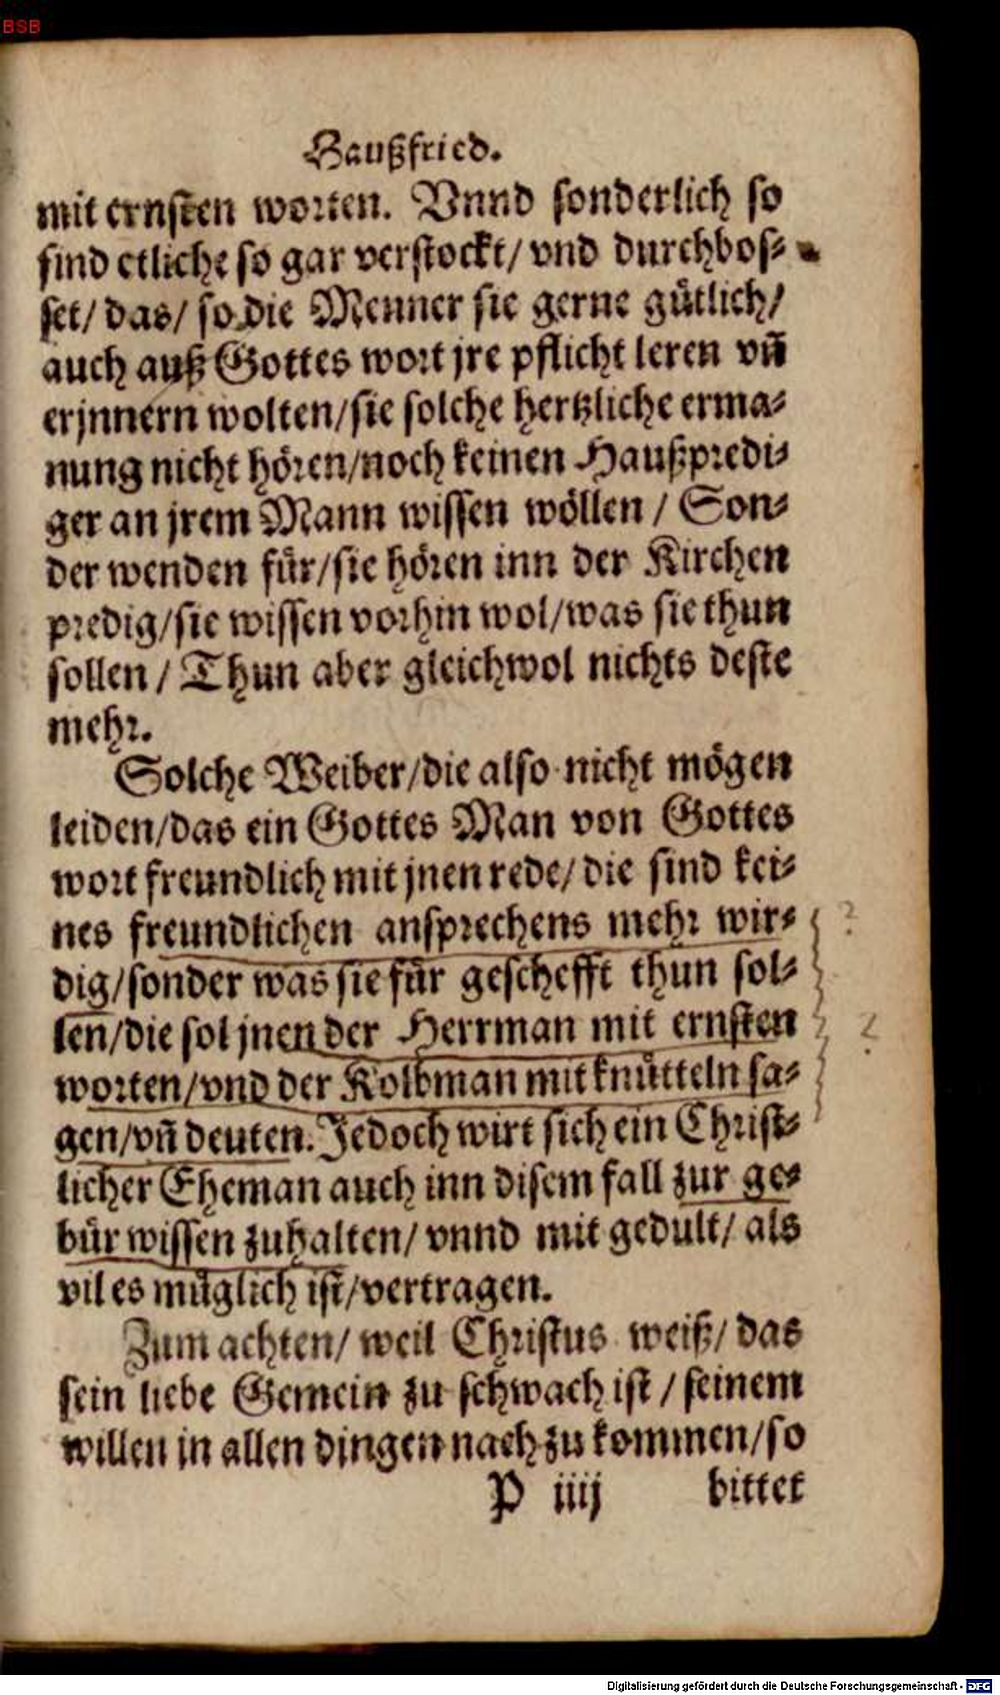 BSB
Haußfried.
mit ernsten worten. Vnnd sonderlich so
sind etliche so gar verstockt/ vnd durchbos⸗
set/ das/ so die Menner sie gerne gütlich/
auch auß Gottes wort jre pflicht leren vñ
erjnnern wolten/sie solche hertzliche erma⸗
nung nicht hören/noch keinen Haußpredi⸗
ger an jrem Mann wissen wöllen / Son⸗
der wenden für/sie hören inn der Kirchen
predig/sie wissen vorhin wol/was sie thun
sollen / Thun aber gleichwol nichts deste
mehr.
Solche Weiber/die also nicht mögen
leiden/das ein Gottes Man von Gottes
wort freundlich mit jnen rede/ die sind kei⸗
nes freundlichen ansprechens mehr wir⸗
dig/sonder was sie für geschefft thun sol⸗
len/die sol jnen der Herrman mit ernsten
worten/vnd der Kolbman mit knütteln sa⸗
gen/vñ deuten. Jedoch wirt sich ein Christ⸗
licher Eheman auch inn disem fall zur ge⸗
bür wissen zuhalten/ vnnd mit gedult/ als
vil es müglich ist/vertragen.
Zum achten/ weil Christus weiß/ das
sein liebe Gemein zu schwach ist / seinem
willen in allen dingen nach zu kommen/so
P iiij bittet
?
?
Digitalisierung gefördert durch die Deutsche Forschungsgemeinschaft - DFG